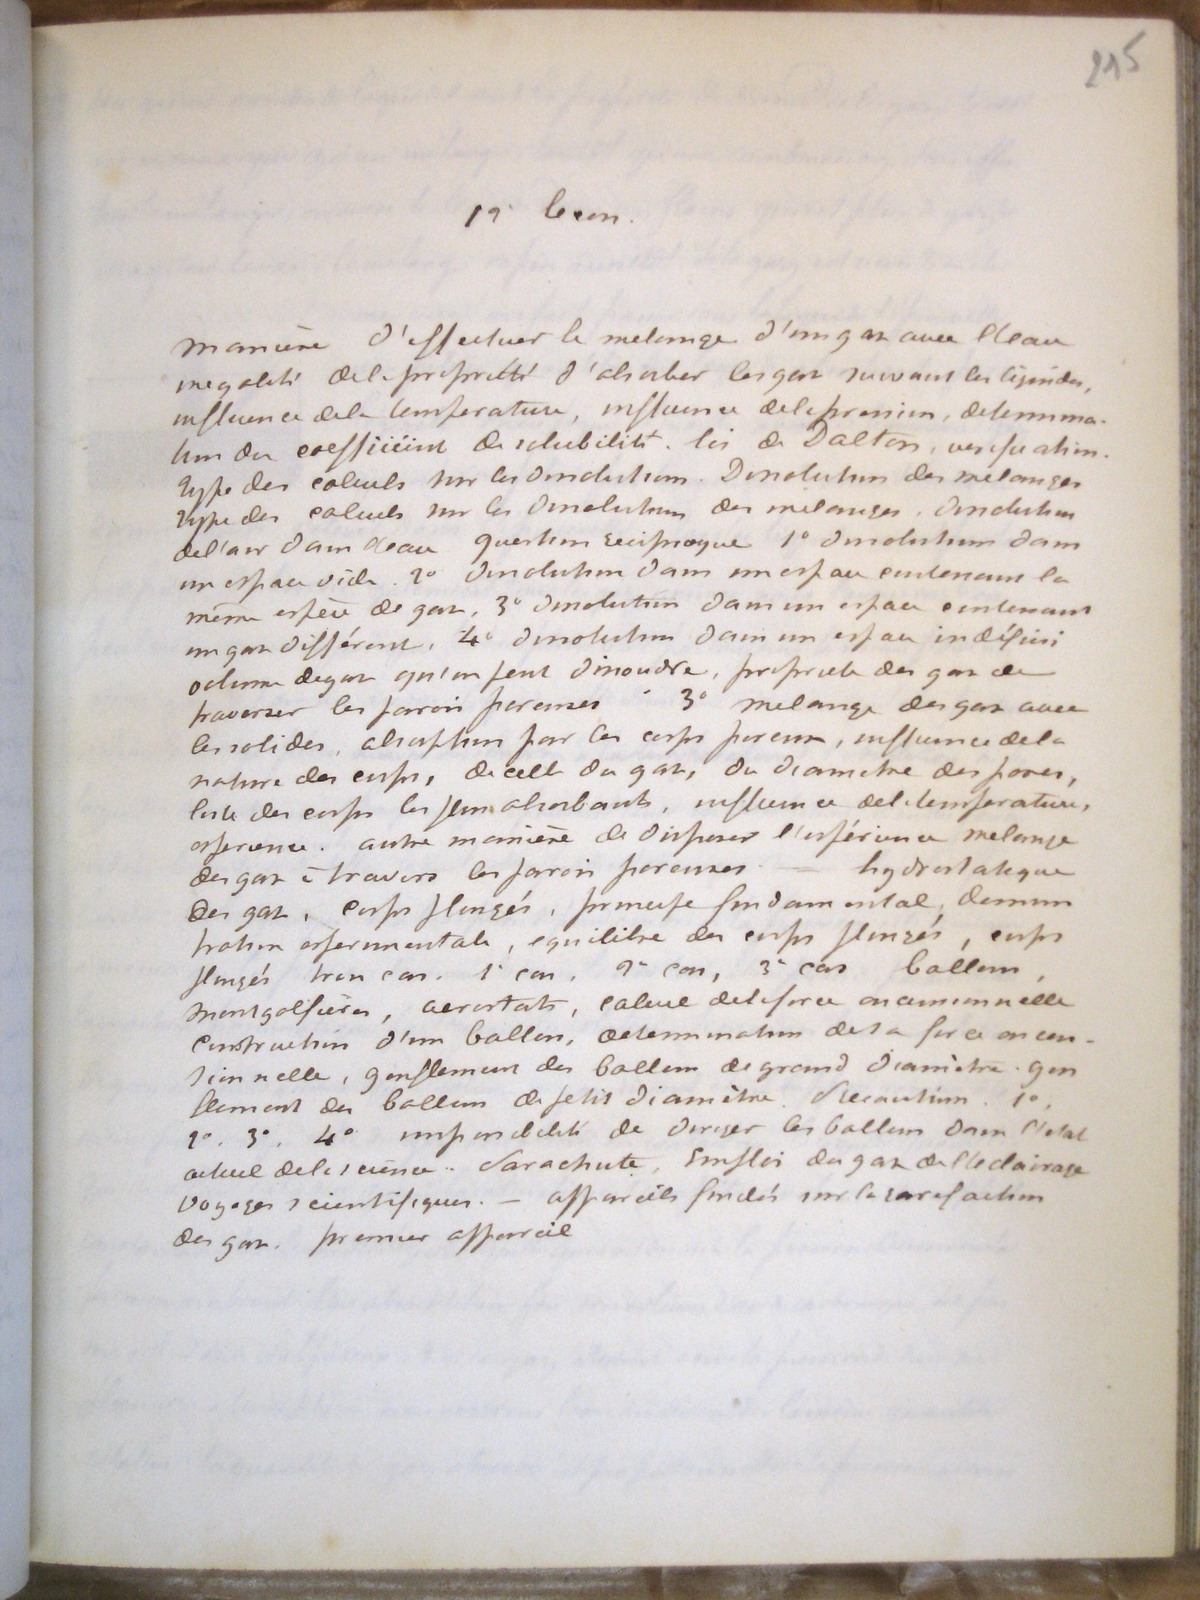 215
19e lecon.
Manière d'effectuer le melange d'un gaz avec l'eau
inegalité de la proprieté d'absorber les gaz suivant les liquides,
influence de la temperature, influence de la pression, determina-
tion du coefficient de solubilité. loi de Dalton, verification.
type des calculs sur les dissolutions. Dissolution des melanges
type des calculs sur les dissolutions des mélanges. dissolution
de l'air dans l'eau question reciproque 1° dissolution dans
un espace vide. 2° dissolution dans un espace contenant la
même espèce de gaz. 3° dissolution dans un espace contenant
un gaz différent. 4° dissolution dans un espace indéfini
volume de gaz qu'on peut dissoudre, propriete des gaz de
traverser les parois poreuses 3° melange des gaz avec
les solides, absorption par les corps poreux, influence de la
nature des corps, de celle du gaz, du diametre des pores,
liste des corps les plus absorbants, influence de la temperature,
experience. autre manière de disposer l'expérience melange
des gaz à travers les parois poreuses — hydrostatique
des gaz, corps plongés, principe fondamental, demons
tration experimentale, equilibre des corps plongés, corps
plongés trois cas. 1e cas, 2e cas, 3e cas ballons,
montgolfières, aerostats, calcul de la force ascensionnelle
construction d'un ballon, determination de sa force ascen-
sionnelle, gonflement des ballons de grand diamètre. gon
flement des ballons de petit diamètre. Precautions. 1°,
2°. 3°. 4° impossibilité de diriger les ballons dans l'etat
actuel de la science. Parachute, Emploi du gaz de l'eclairage
voyages scientifiques. — appareils fondés sur la rarefaction
des gaz. premier appareil